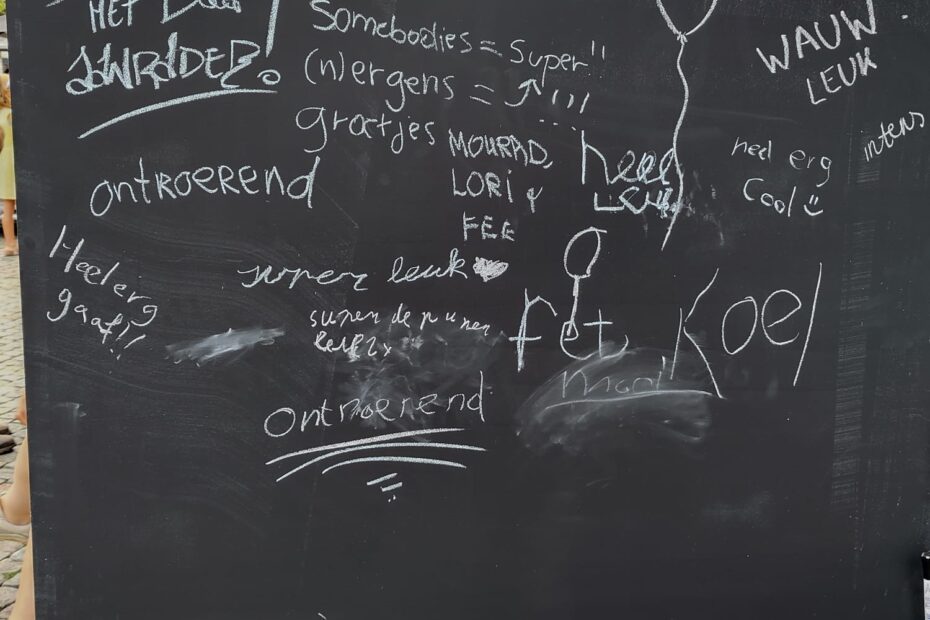 HET
Somebodies = Super!!
(n)ergens =
groetjes MOURAD,
LORI &
FEE
WAUW
LEUK
intens
heel
LEUK
heel erg
Cool
ONTROEREND
Heel erg
gaaf!!
super leuk
super de puper
leuk
fet
Koel
mooi
ONTROEREND